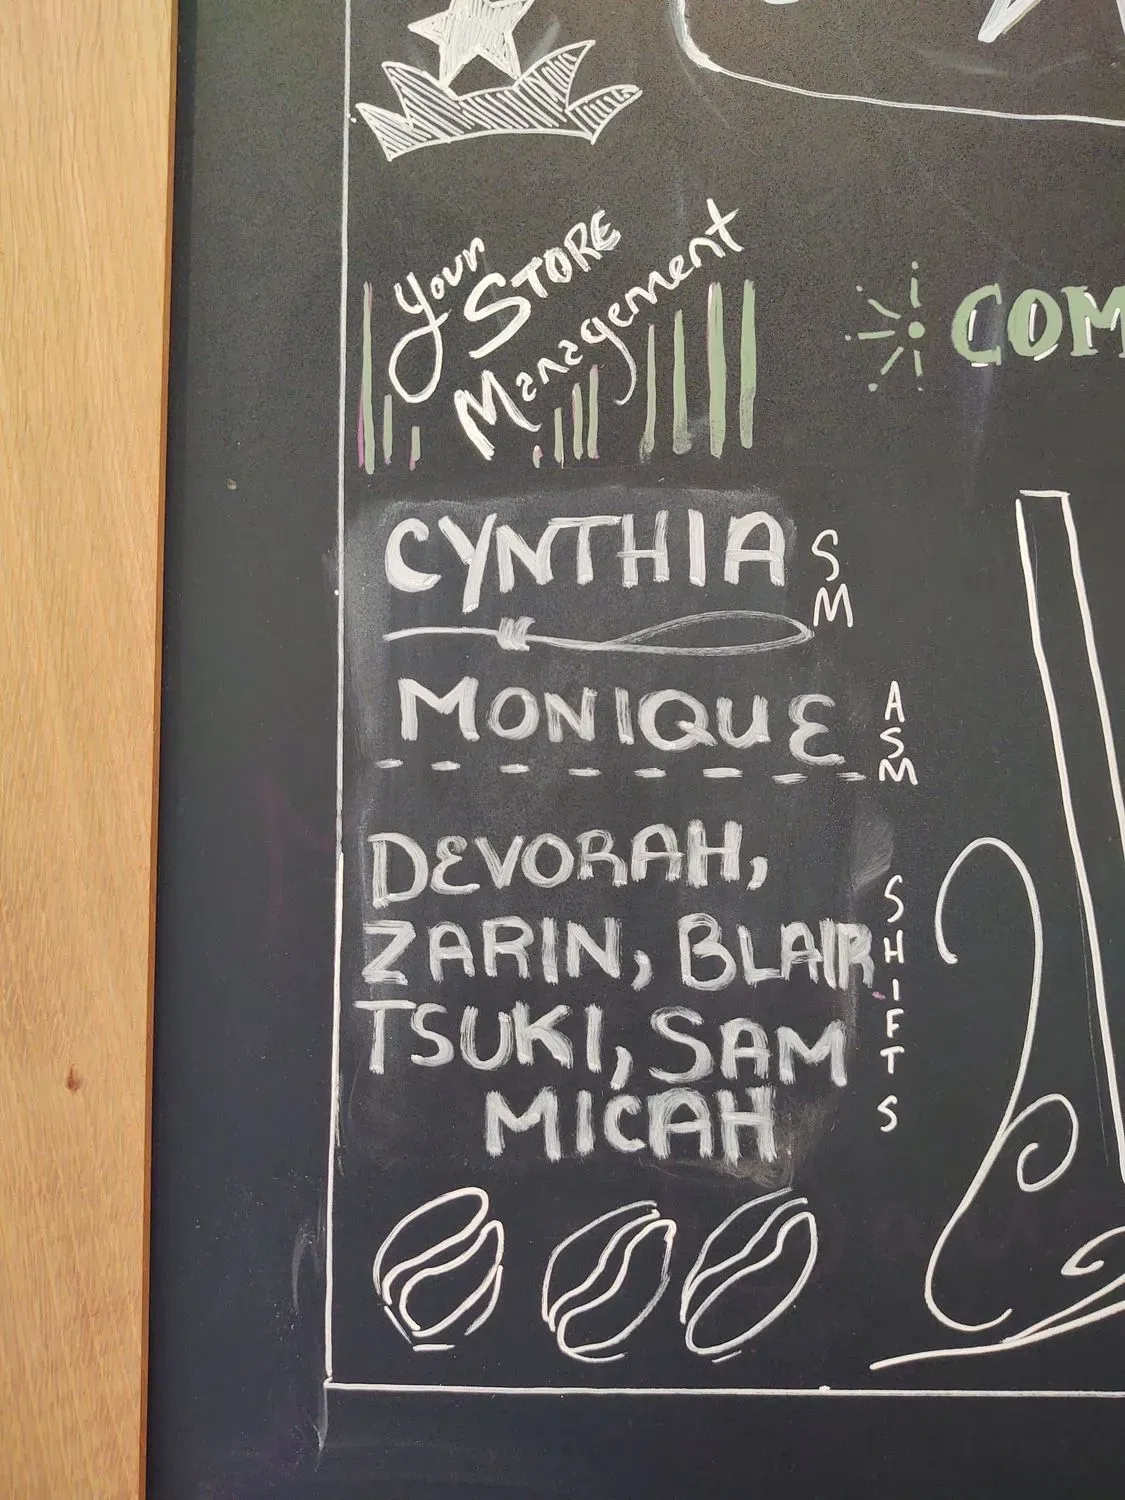 Your
STORE
Management
COM
CYNTHIA SM
MONIQUE ASM
DEVORAH,
ZARIN, BLAIR
TSUKI, SAM
MICAH
SHIFTS